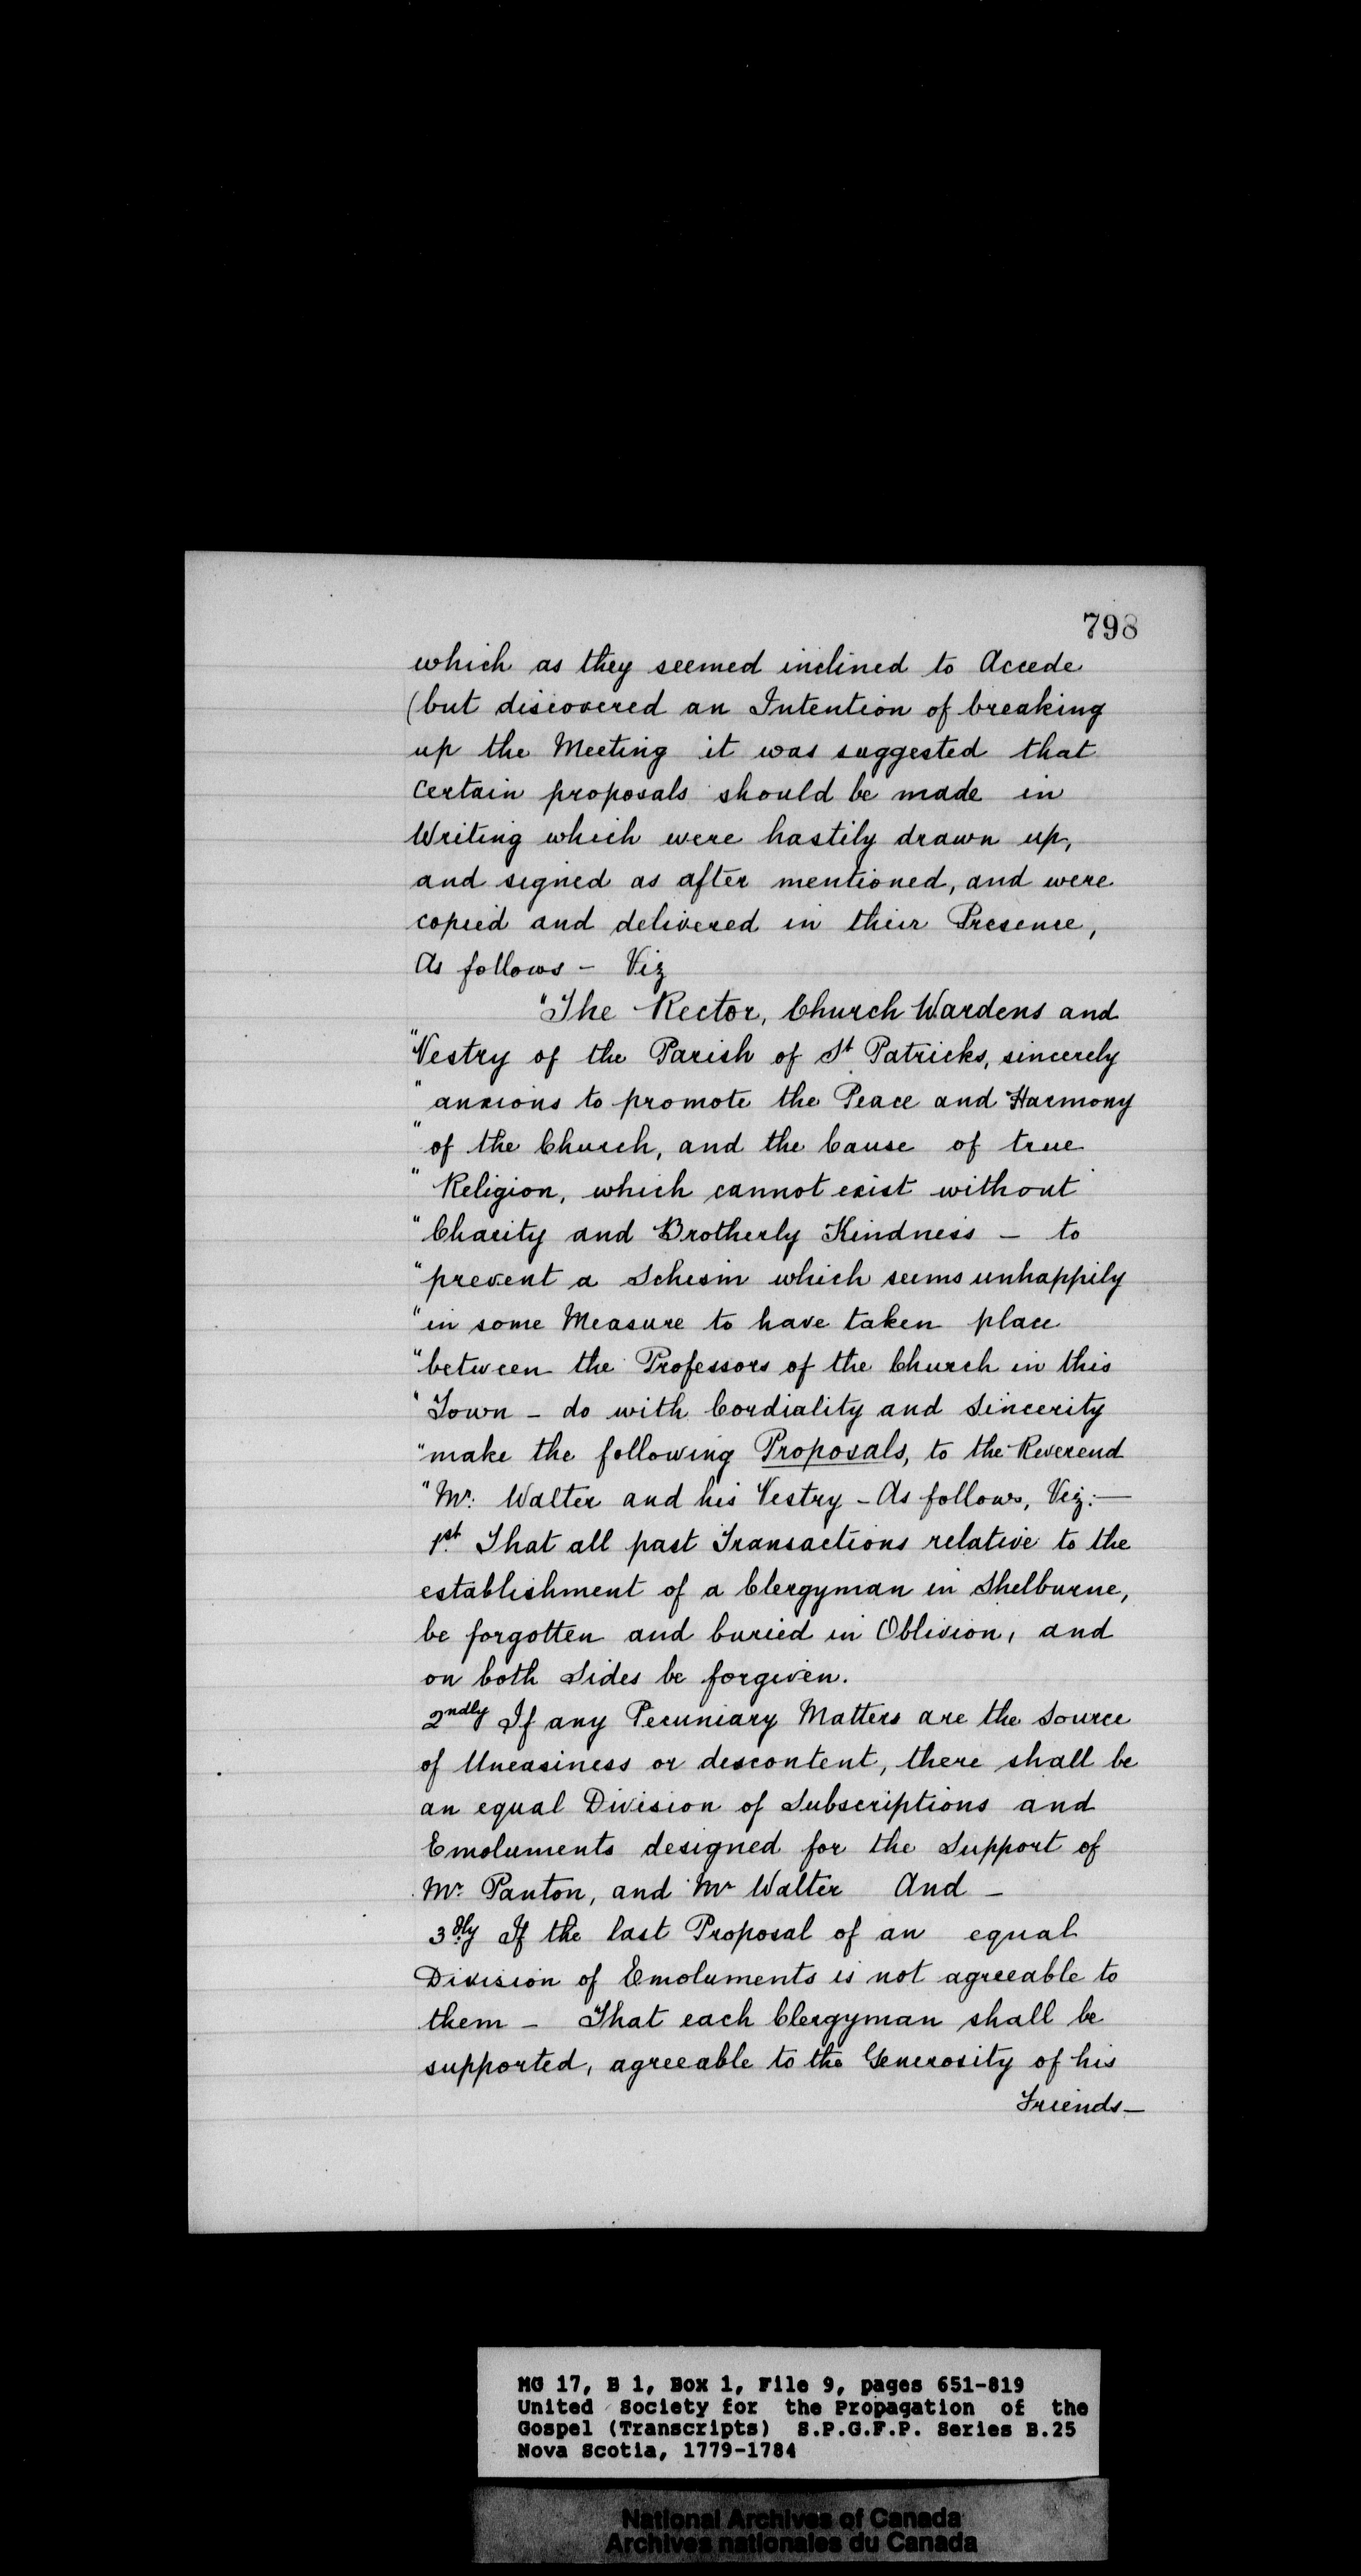 798
which as they seemed inclined to Accede
(but discovered an Intention of breaking
up the Meeting it was suggested that
Certain proposals should be made in
Writing which were hastily drawn up,
and signed as after mentioned, and were
copied and delivered in their Presence,
As follows - Viz
"The Rector, Church Wardens and
"Vestry of the Parish of St Patricks, sincerely
"anxious to promote the Peace and Harmony
"of the Church, and the Cause of true
"Religion, which cannot exist without
"Charity and Brotherly Kindness - to
"prevent a Schism which seems unhappily
"in some Measure to have taken place
"between the Professors of the Church in this
"Town - do with Cordiality and Sincerity
"make the following Proposals, to the Reverend
"Mr. Walter and his Vestry - As follows, Viz: —
1st. That all past Transactions relative to the
establishment of a Clergyman in Shelburne,
be forgotten and buried in Oblivion, and
on both Sides be forgiven.
2ndly If any Pecuniary Matters are the Source
of Uneasiness or descontent, there shall be
an equal Division of Subscriptions and
Emoluments designed for the Support of
Mr. Panton, and Mr Walter And -
3dly If the last Proposal of an equal
Division of Emoluments is not agreeable to
them - That each Clergyman shall be
supported, agreeable to the Generosity of his
Friends -
MG 17, B 1, Box 1, File 9, pages 651-819
United Society for the Propagation of the
Gospel (Transcripts) S.P.G.F.P. Series B.25
Nova Scotia, 1779-1784
National Archives of Canada
Archives nationales du Canada